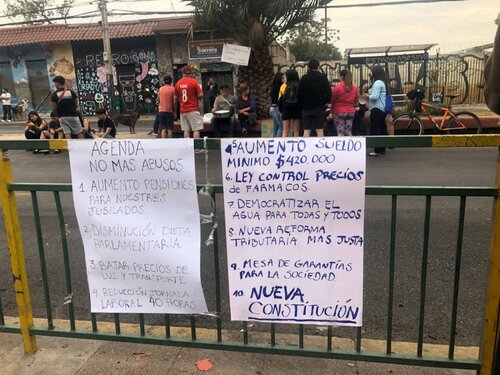 AGENDA
NO MAS ABUSOS
1. AUMENTO PENSIONES
PARA NUESTR@S
JUBILADOS.
2. DISMINUCIÓN DIETA
PARLAMENTARIA.
3. BAJAR PRECIOS DE
LUZ Y TRANSPORTE
4. REDUCCIÓN JORNADA
LABORAL 40 HORAS
5. AUMENTO SUELDO
MÍNIMO $420.000
6. LEY CONTROL PRECIOS
DE FARMACOS.
7. DEMOCRATIZAR EL
AGUA PARA TODAS Y TODOS
8. NUEVA REFORMA
TRIBUTARIA MAS JUSTA
9. MESA DE GARANTÍAS
PARA LA SOCIEDAD.
10. NUEVA
CONSTITUCIÓN
8